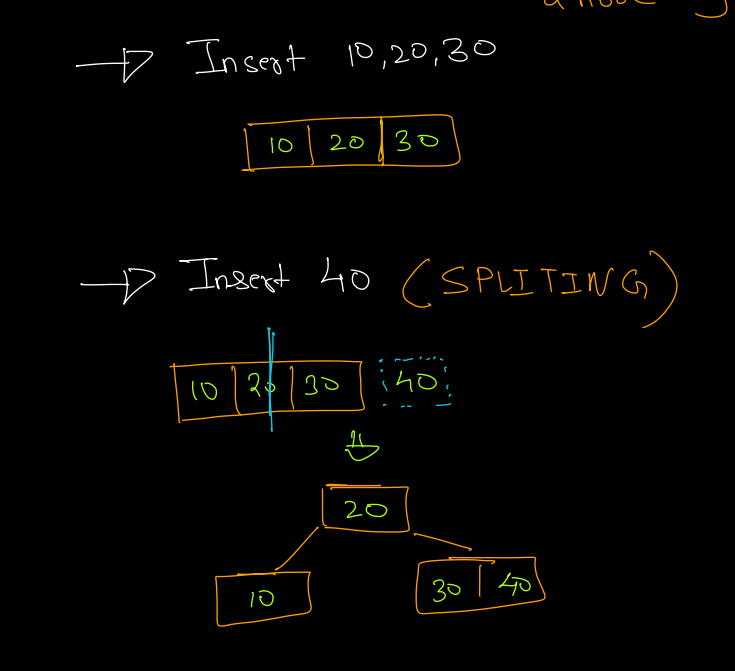 Insert 10,20,30
10 20 30
Insert 40 (SPLITING)
10 20 30 40
20
10
30 40